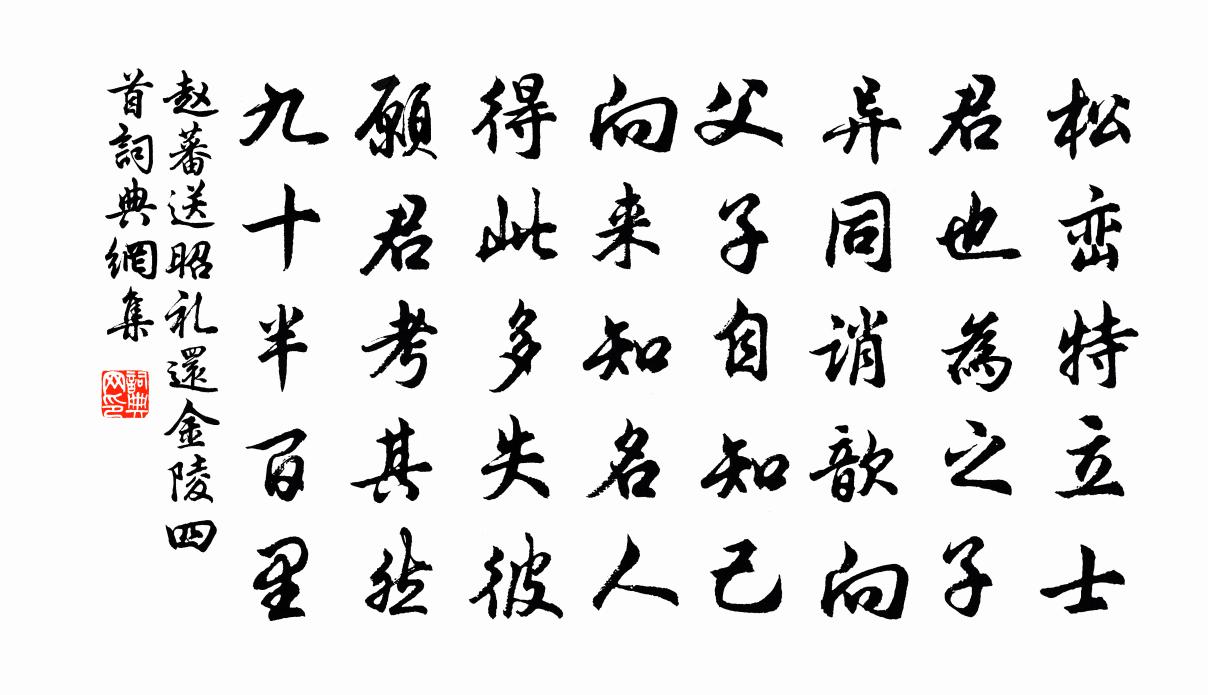 松峦特立士
君也為之子
异同诮歆向
父子自知己
向来知名人
得此多失彼
願君考其然
九十半百里
赵蕃送昭礼還金陵四
首詞典網集
詞典网印